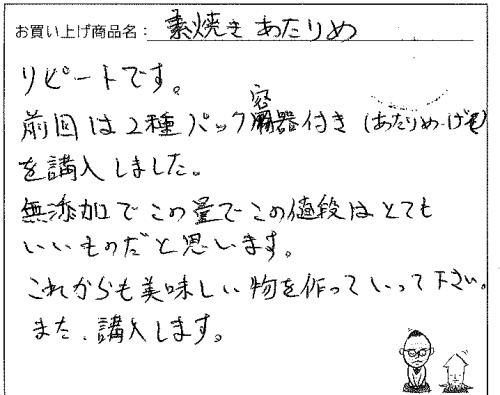 お買い上げ商品名： 素焼きあたりめ
リピートです。
前回は2種パック容器付き(あたりめ・げそ)
を講入しました。
無添加でこの量でこの値段はとても
いいものだと思います。
これからも美味しい物を作っていって下さい。
また、講入します。